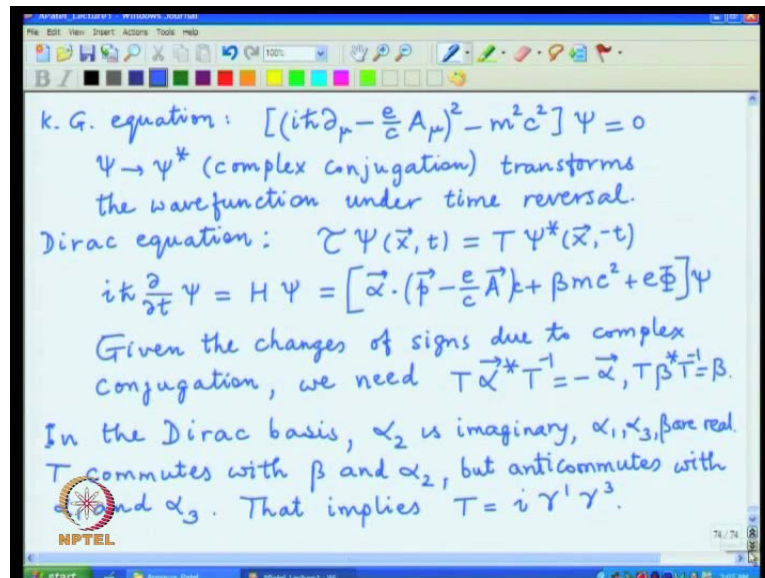 APatel_Lecture1 - Windows Journal
File Edit View Insert Actions Tools Help
100%
B I
K. G. equation: [(iħ∂_μ - e/c A_μ)² - m²c²] Ψ = 0
Ψ → Ψ* (complex conjugation) transforms
the wavefunction under time reversal.
Dirac equation: τ Ψ(x⃗, t) = T Ψ*(x⃗, -t)
iħ ∂/∂t Ψ = H Ψ = [α⃗·(p⃗ - e/c A⃗)c + βmc² + eΦ]Ψ
Given the changes of signs due to complex
conjugation, we need T α⃗* T⁻¹ = -α⃗, T β* T⁻¹ = β.
In the Dirac basis, α₂ is imaginary, α₁, α₃, β are real.
T commutes with β and α₂, but anticommutes with
and α₃. That implies T = i γ¹ γ³.
NPTEL
74 / 74
start